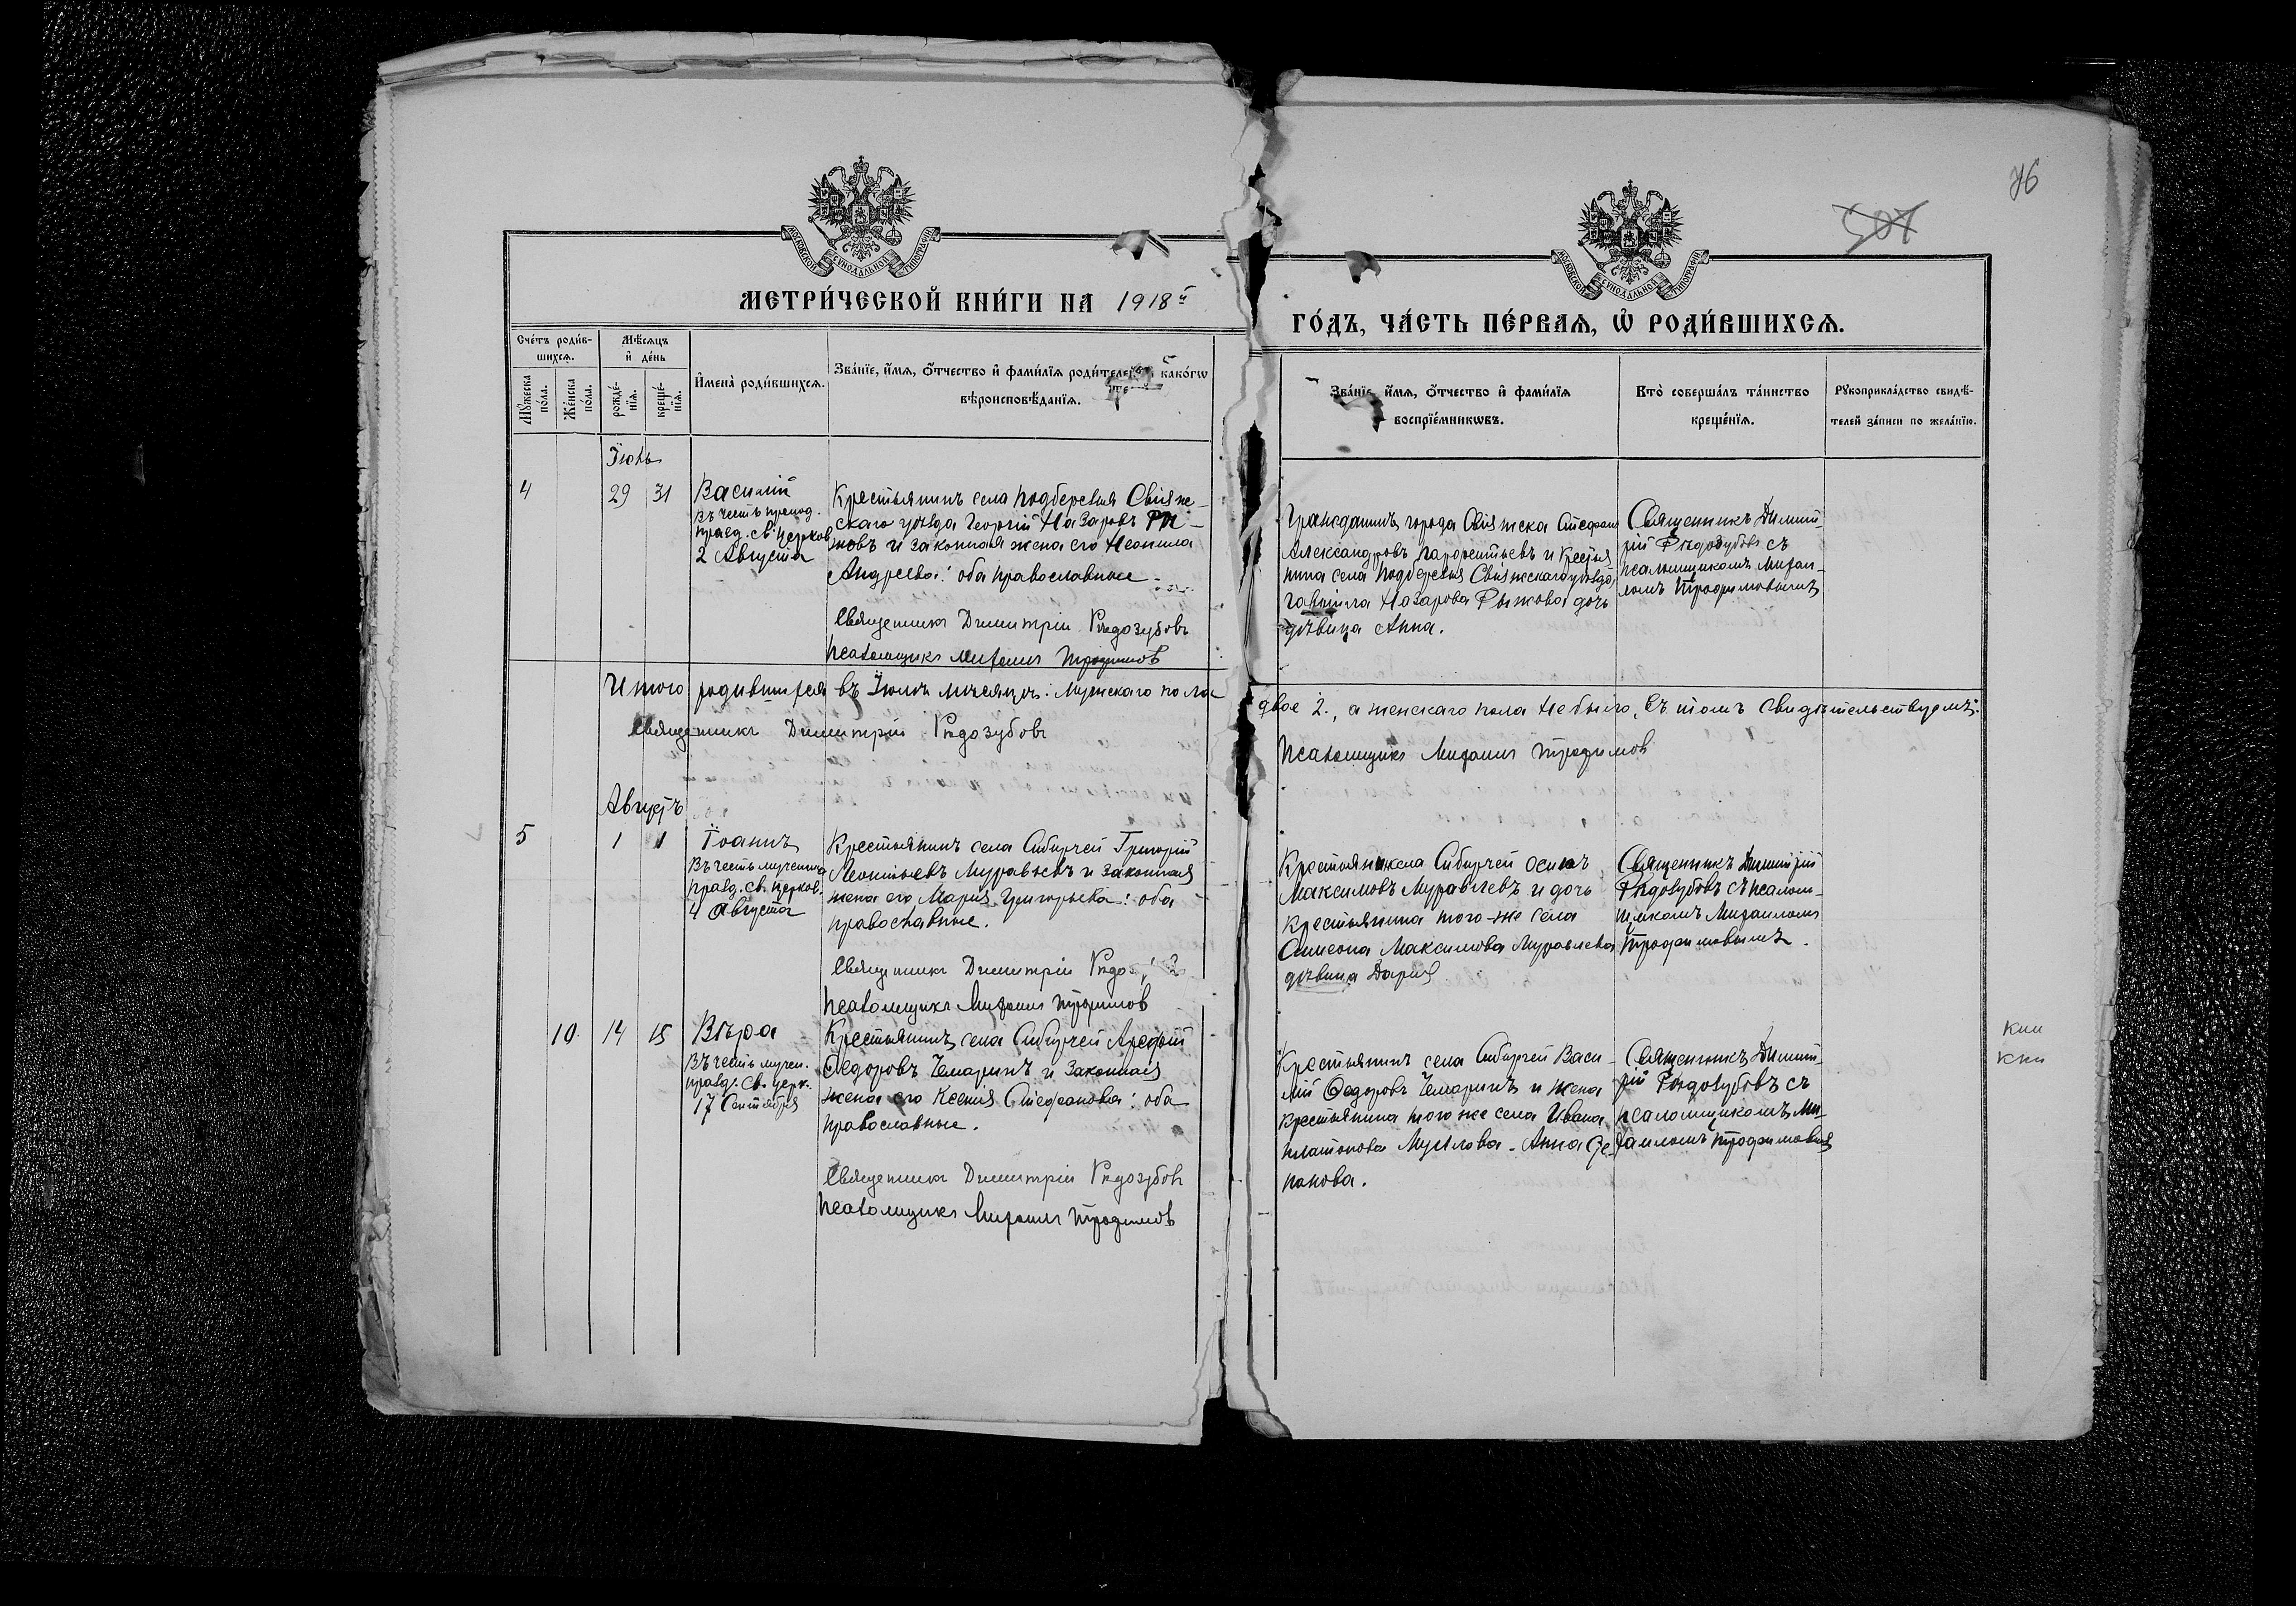 76
507
МОСКОВСКОЙ СѴНОДАЛЬНОЙ ТИПОГРАФІИ
МОСКОВСКОЙ СѴНОДАЛЬНОЙ ТИПОГРАФІИ
МЕТРИ́ЧЕСКОЙ КНИ́ГИ НА 1918й
ГО́ДЪ, ЧА́СТЬ ПЕ́РВАѦ, Ѡ҆ РОДИ́ВШИХСѦ.
Сче́тъ роди́в-
шихсѧ.
Мѣ́сѧцъ
и҆ де́нь
Мꙋ́жеска
по́ла.
Же́нска
по́ла.
рожде́-
нїѧ.
креще́-
нїѧ.
И҆мена̀ роди́вшихсѧ.
Зва́нїе, и҆́мѧ, ѻ҆́тчество и҆ фами́лїѧ роди́телей, како́гѡ
вѣроисповѣ́данїѧ.
Зва́нїе, и҆́мѧ, ѻ҆́тчество и҆ фами́лїѧ
воспрїе́мникѡвъ.
Кто̀ соверша́лъ та́инство
креще́нїѧ.
Рꙋкоприкла́дство свидѣ́-
телей за́писи по жела́нїю.
Іюль
4 29 31 Василій
въ честь препод.
празд. св. церков.
2 Августа
Крестьянинъ села Подберезья Свіяж-
скаго уѣзда Георгій Назаровъ Ры-
жовъ и законная жена его Неонила
Андреева: оба православные
Священникъ Димитрій Рѣдозубовъ
Псаломщикъ Михаилъ Трофимовъ
Гражданинъ города Свіяжска Стефан
Александровъ Парфентьевъ и Крестья
нина села Подберезья Свіяжскаго уѣзда
Гавриила Назарова Рыжова дочь
дѣвица Анна.
Священникъ Димит-
рій Рѣдозубовъ съ
псаломщикомъ Михаи-
ломъ Трофимовымъ
Итого родившихся въ Іюлѣ мѣсяцѣ: Мужскаго пола
двое 2., а женскаго пола не было, въ томъ свидѣтельствуемъ:
Священникъ Димитрій Рѣдозубовъ
Псаломщикъ Михаилъ Трофимовъ
Августъ
5 1 1 Іоаннъ
Въ честь мученика
празд. св. церков.
4 Августа
Крестьянинъ села Сибирчей Григорій
Леонтьевъ Муравьевъ и законная
жена его Марія Григорьева: оба
православные.
Священникъ Димитрій
Псаломщикъ Михаилъ Трофимовъ
Крестьянин села Сибирчей Осипъ
Максимовъ Муравьевъ и дочь
крестьянина того-же села
Симеона Максимова Муравьева
дѣвица Дарія
Священникъ Димитрій
Рѣдозубовъ съ псалом-
щикомъ Михаиломъ
Трофимовымъ.
10. 14 15 Вѣра
Въ честь мучен.
празд. св. церк.
17 Сентября
Крестьянинъ села Сибирчей Арефій
Ѳедоровъ Чемаринъ и законная
жена его Ксенія Стефанова: оба
православные.
Священникъ Димитрій Рѣдозубовъ
Псаломщикъ Михаилъ Трофимовъ
Крестьянинъ села Сибирчей Васи-
лій Ѳедоровъ Чемаринъ и жена
крестьянина того же села Ивана
Платонова - Анна
Священникъ Димит-
рій Рѣдозубовъ съ
псаломщикомъ Ми-
хаиломъ Трофимовымъ